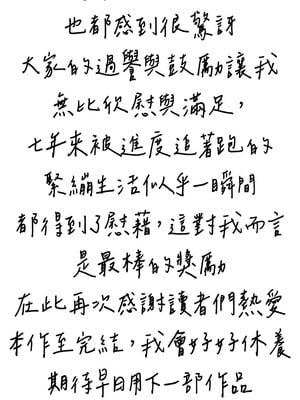 也都感到很驚訝
大家的過譽與鼓勵讓我
無比欣慰與滿足，
七年來被進度追著跑的
緊繃生活似乎一瞬間
都得到了慰藉，這對我而言
是最棒的獎勵
在此再次感謝讀者們熱愛
本作至完結，我會好好休養
期待早日用下一部作品